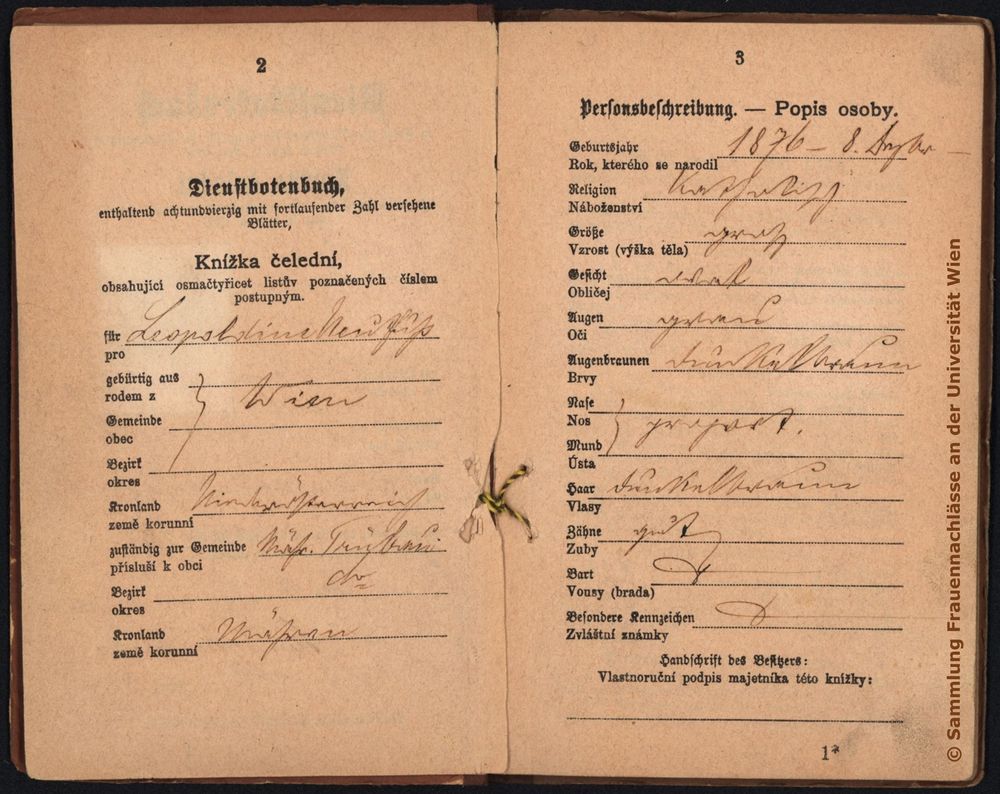 2
Dienstbotenbuch,
enthaltend achtundvierzig mit fortlaufender Zahl versehene
Blätter,
Knížka čelední,
obsahující osmačtyřicet listův poznačených číslem
postupným.
für Leopoldine
pro
gebürtig aus
rodem z
Wien
Gemeinde
obec
Bezirk
okres
Kronland Niederösterreich
země korunní
zuständig zur Gemeinde Mähr. Trübau
přísluší k obci
Bezirk dto
okres
Kronland Mähren
země korunní
3
Personsbeschreibung. — Popis osoby.
Geburtsjahr 1876 – 8.
Rok, kterého se narodil
Religion Katholisch
Náboženství
Größe groß
Vzrost (výška těla)
Gesicht oval
Obličej
Augen grau
Oči
Augenbraunen dunkelbraun
Brvy
Nase
Nos
proport.
Mund
Ústa
Haar dunkelbraun
Vlasy
Zähne gut
Zuby
Bart
Vousy (brada)
Besondere Kennzeichen
Zvláštní známky
Handschrift des Besitzers:
Vlastnoruční podpis majetníka této knížky:
1*
© Sammlung Frauennachlässe an der Universität Wien